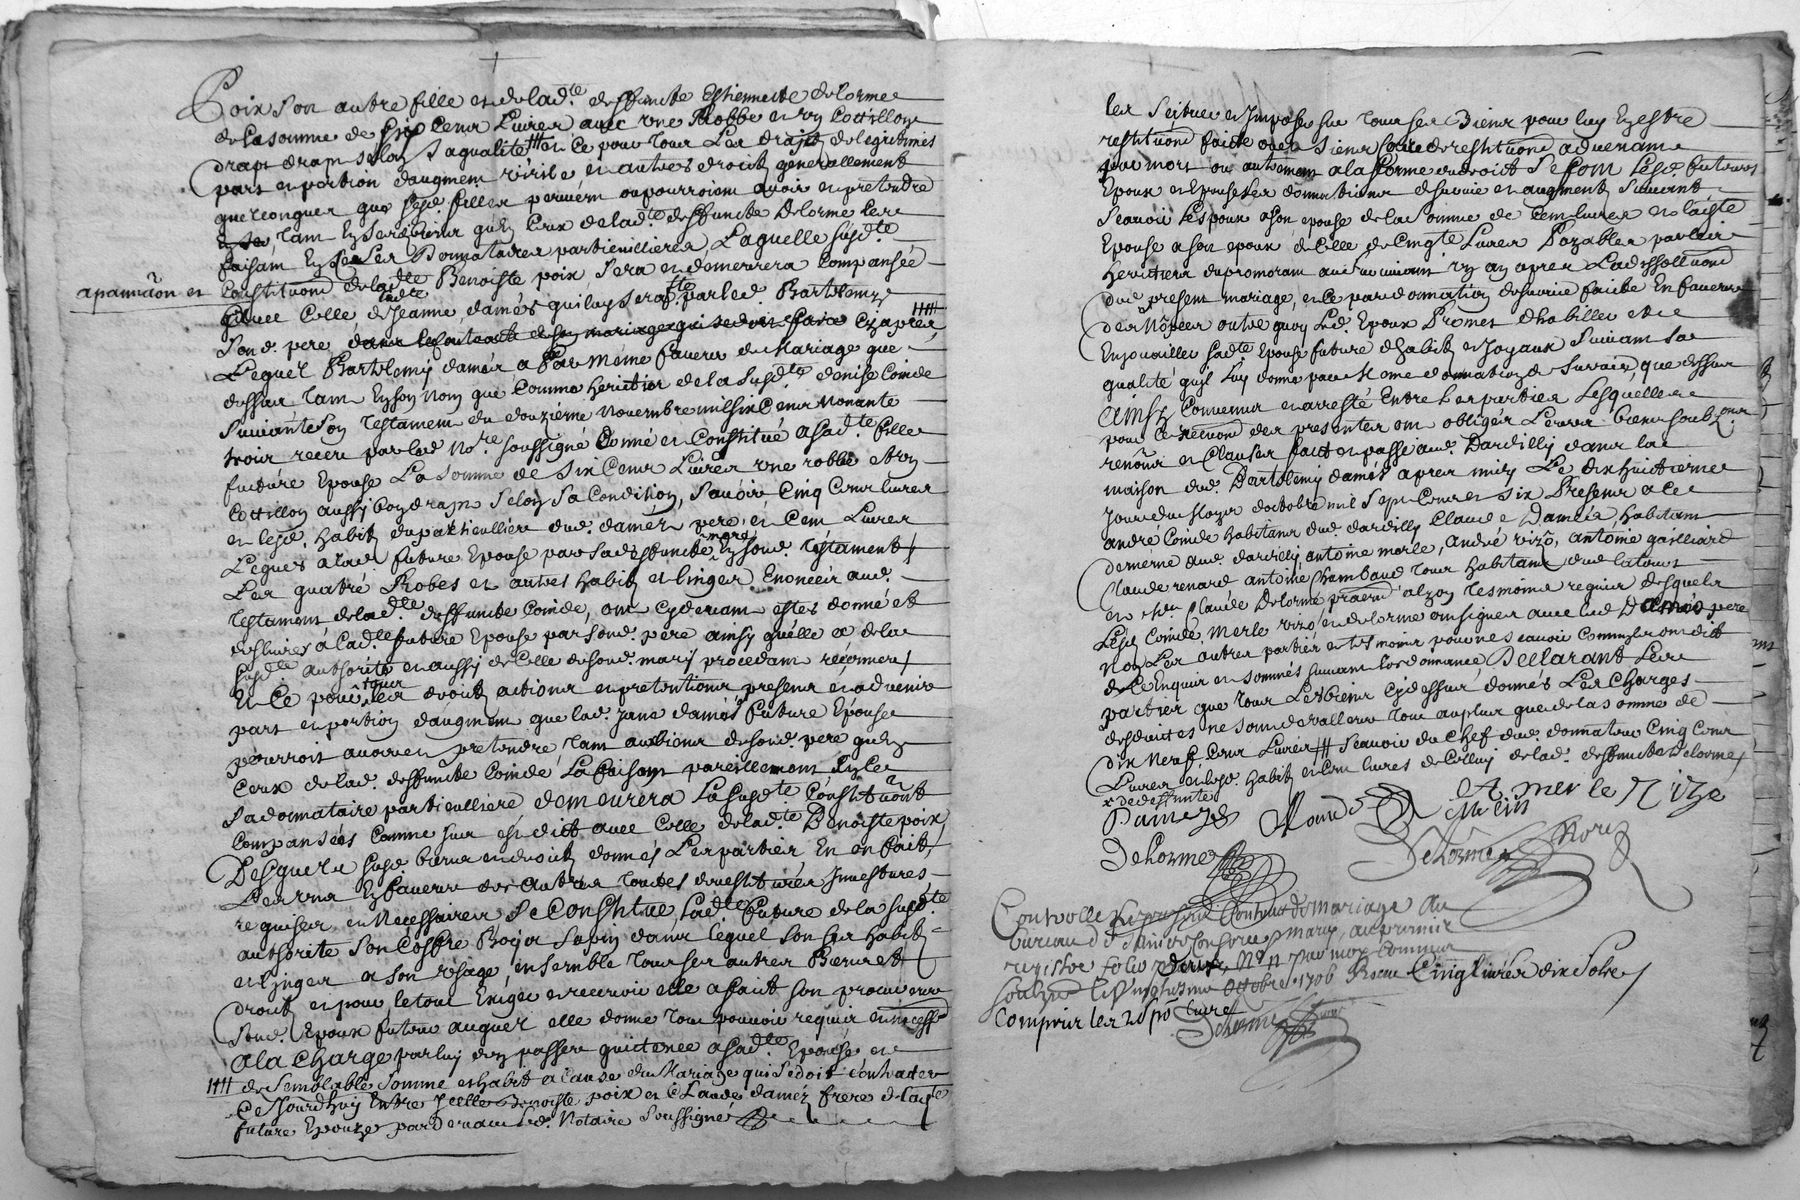 poix son autre fille et de lad.te deffuncte Estiennette delorme
de la somme de six cens Livres avec une Robbe et un Cotillon
drap selon sa qualité et ce pour tous Les droits de legitimes
part et portion daugment virile et autres droits generallement
quelconques que lesd. filles peuvent ou pourroient avoir et pretendre
tant En ses biens qu'En Ceux de lad.te deffuncte Delorme Les
faisant Donnataires particullieres Laquelle susd.te
apanution et
Constituôn de lad.te Benoiste poix sera et demeurera Compansée
avec Celle de Jeanne damés qui luy sera par led. Barthlemy
Sond. pere Cy apres
Lequel Barthlemy damés a Par Méme faveur du Mariage que
dessus tant En son Nom que Comme Heritier de la susd.te denise Coinde
Suivant Son Testament du douzième Novembre mil six Cens Nonante
trois receu par led. No.re soussigné donné et Constitué a sad.te fille
future Epouse La somme de Six Cens Livres une robbe et un
Cottillon aussy bon drap Selon Sa Condition, Sçavoir Cinq Cens livres
et lesd. habits du particullier dud. damés pere, et Cent Livres
Legués a lad. future Epouse par sad. deffuncte mere En sond. Testament
Les quatre Robes et autres habits et linges Enoncés aud.
Testament de lad.te deffuncte Coinde, ont cy devant estes donné et
deslivrés a Lad.te future Epouse par sond. pere ainsy qu'elle a de la
susd.te authorité et aussy de Celle de sond. mary procedant
Et Ce pour tous Les droits actions et pretentions presens et advenir
part et portion daugment que lad. Jane damés future Epouse
pourroit avoir et pretendre tant aux biens de sond. pere qu'En
Ceux de lad. deffuncte Coinde La faisant pareillement
Sa donnataire particulliere demeurera La susd.te Constituôn
Compansées Comme sus est dict avec Celle de lad.te Benoiste poix
Desquels susd. biens et droits donnés Les parties En ont fait
Les uns En faveur des autres toutes devestitures Investures
requises et Necessaires Se Constitue Lad.te future de la susd.te
authorité Son Coffre Boys Sapin dans lequel sont ses habits
et linges a son usage ensemble tous ses autres Biens et
droits et pour le tout Exiger et recevoir elle a faict son procureur
Sond. Epoux futur auquel elle donne tout pouvoir requis et necess.re
a la Charge par luy den passer quittance a sad.te Epouse et
de Semblable Somme et habit a Cause du Mariage qui se doit Contracter
Ce Jourdhuy Entre Icelle Benoiste poix et Claude damés frere de la d.te
future Epouze par Devant led. Notaire Soussigné
les Scituer et Imposer sur tous ses Biens pour luy En estre
restitutiôn faicte ou es siens de restitutiôn advenant
par mort ou autrement a la forme du droict Se font Lesd. futurs
Epoux et Epouse Les donnations de survie et augment Suivant
Scavoir Lespoux a son epouse de la somme de Cent livres et lad.te
Epouse a son epoux de Celle de Cinq.te Livres Payables par les
Heritiers du premourant au survivant un an apres La dissolluôn
dud. present mariage, et Ce par donnation de survie faicte En faveur
de Nôpces outre quoy Led. Epoux Promet dhabiller et
Enjouailler sad.te Epouse future dhabits et Joyaux Suivant Sa
qualité qu'il Luy donne par mesme donnation de Survie que dessus
Ainsy Convenu et arresté Entre Les parties Lesquelles
pour Ce des presentes ont obligés Leurs biens
renôn et Clauses faict et passé aud. Dardilly dans la
maison dud. Barthlemy damés apres midy Le dix huictieme
Jour du Moys doctobre mil Sept Cens et six Presens a Ce
andré Coinde habitant dud. dardilly Claude Damés habitant
dememe aud. dardilly, antoine merle, André vizo, antoine gailliard
Claude renard antoine Chambaud tous habitans dud. lieu
et M.re Claude Delorme tesmoins requis desquels
Lesd. Coinde, Merle vizo et delorme ont signer avec Led Damés pere
non Les autres parties et tesmoins pour ne scavoir Comme ils ont dict
de Ce Enquis et sommés suivant lordonnance Declarant Les
parties que tous Les biens cy dessus donnés Les Charges
desduites ne sont de valleur tout au plus que de la somme de
dix Neuf Cens Livres Scavoir du Chef dud. donnateur Cinq Cens
Livres et lesd. habits et Cent livres de Celluy de lad. deffuncte Delorme
Damez
A. merle
Vizo
Delorme
Controllé le present Contract de mariage au
bureau
registre folio
Octtobre 1706 Receu Cinq livres dix Solz
Comprir les 20 p.r livre
Delorme